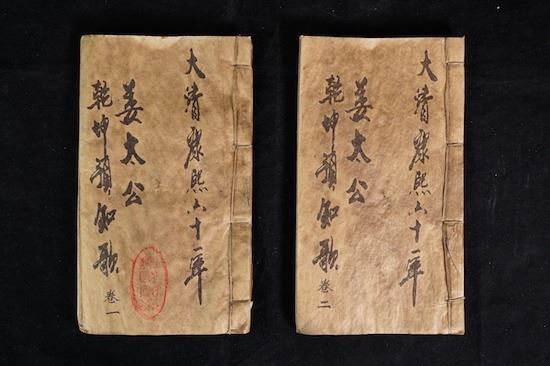 大清康熙六十一年
姜太公
乾坤預知歌 卷一
大清康熙六十一年
姜太公
乾坤預知歌 卷二